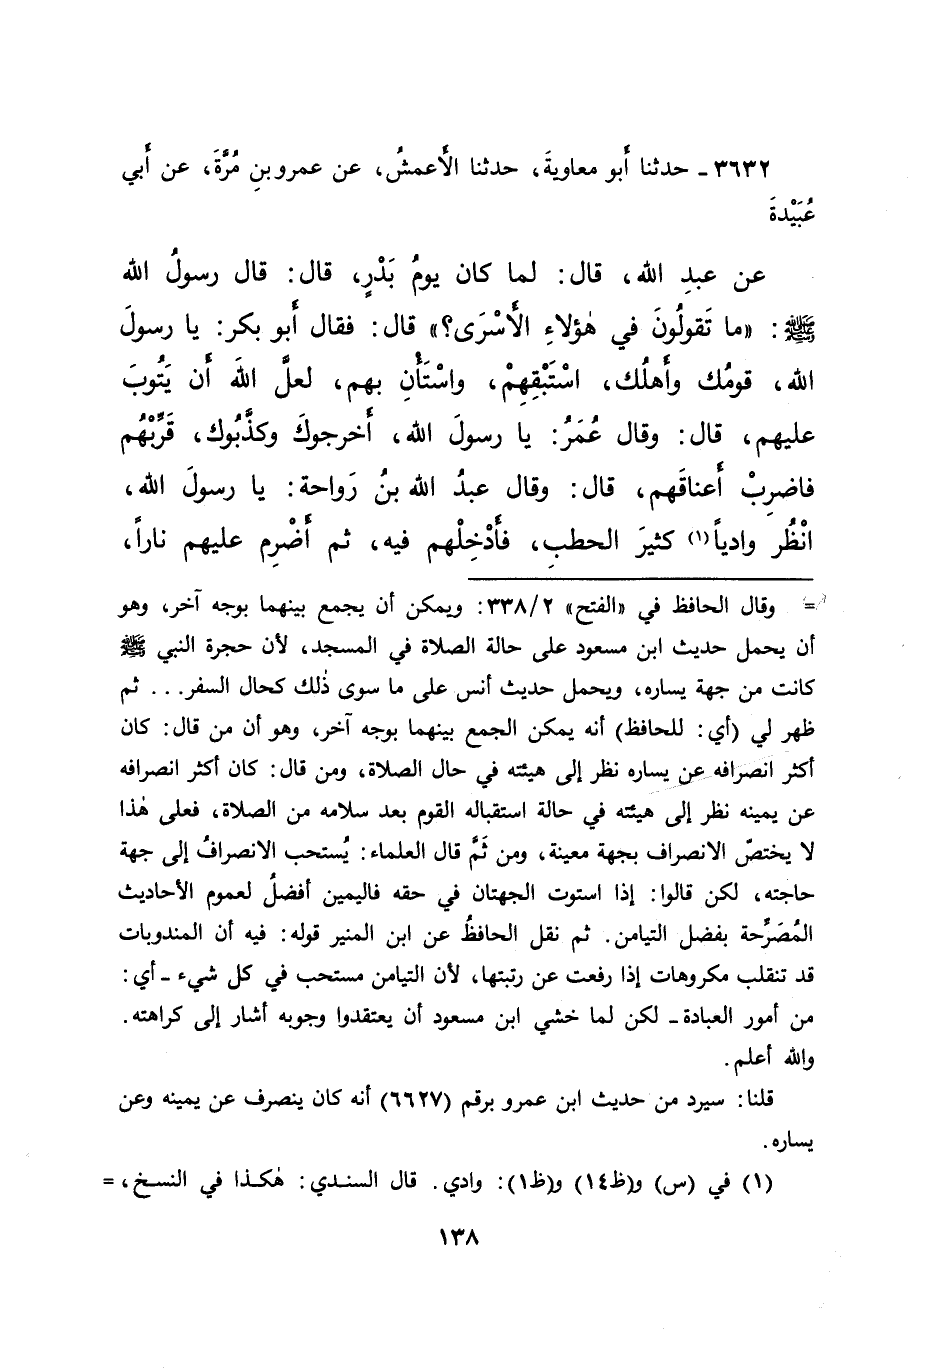 ٣٦٣٢ ـ حدثنا أَبو معاويةَ، حدثنا الأَعمشُ، عن عمرو بنِ مُرَّةَ، عن أَبي
عُبَيْدةَ
عن عبدِ الله، قال: لما كان يومُ بَدْرٍ، قال: قال رسولُ الله
ﷺ: «ما تَقولُونَ في هٰؤلاءِ الأَسْرَى؟» قال: فقال أَبو بكر: يا رسولَ
الله، قومُك وأَهلُك، اسْتَبْقِهِمْ، واسْتَأْنِ بهم، لعلَّ اللهَ أَن يَتُوبَ
عليهم، قال: وقال عُمَرُ: يا رسولَ الله، أَخرجوكَ وكذَّبُوك، قَرِّبْهُم
فاضرِبْ أَعناقَهم، قال: وقال عبدُ الله بنُ رَواحة: يا رسولَ الله،
انْظُر وادياً(١) كثيرَ الحطبِ، فأَدْخِلْهم فيه، ثم أَضْرِم عليهم ناراً،
= وقال الحافظ في «الفتح» ٣٣٨/٢: ويمكن أن يجمع بينهما بوجه آخر، وهو
أن يحمل حديث ابن مسعود على حالة الصلاة في المسجد، لأن حجرة النبي ﷺ
كانت من جهة يساره، ويحمل حديث أنس على ما سوى ذٰلك كحال السفر... ثم
ظهر لي (أي: للحافظ) أنه يمكن الجمع بينهما بوجه آخر، وهو أن من قال: كان
أكثر انصرافه عن يساره نظر إلى هيئته في حال الصلاة، ومن قال: كان أكثر انصرافه
عن يمينه نظر إلى هيئته في حالة استقباله القوم بعد سلامه من الصلاة، فعلى هٰذا
لا يختصّ الانصراف بجهة معينة، ومن ثَمَّ قال العلماء: يُستحب الانصرافُ إلى جهة
حاجته، لكن قالوا: إذا استوت الجهتان في حقه فاليمين أفضلُ لعموم الأحاديث
المُصَرِّحة بفضل التيامن. ثم نقل الحافظُ عن ابن المنير قوله: فيه أن المندوبات
قد تنقلب مكروهات إذا رفعت عن رتبتها، لأن التيامن مستحب في كل شيء ـ أي:
من أمور العبادة ـ لكن لما خشي ابن مسعود أن يعتقدوا وجوبه أشار إلى كراهته.
والله أعلم.
قلنا: سيرد من حديث ابن عمرو برقم (٦٦٢٧) أنه كان ينصرف عن يمينه وعن
يساره.
(١) في (س) و(ظ١٤) و(ظ١): وادي. قال السندي: هٰكذا في النسخ، =
١٣٨